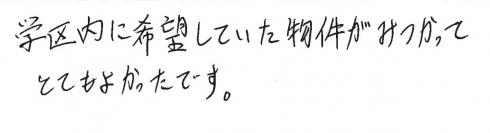 学区内に希望していた物件がみつかって
とてもよかったです。